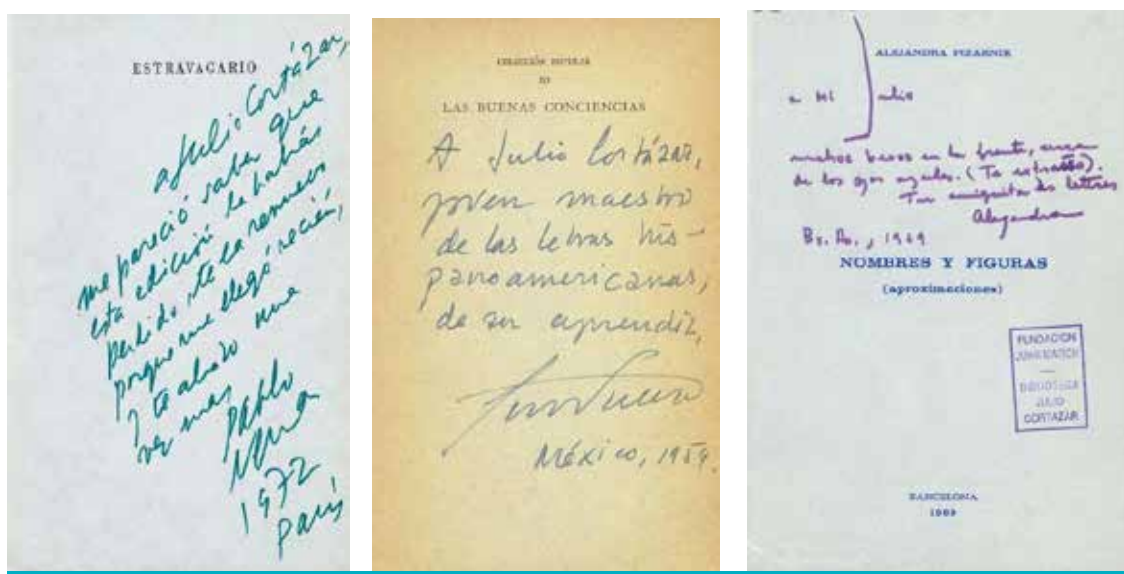 ESTRAVAGARIO
a Julio Cortázar,
me pareció saber que
esta edición la habías
perdido, te la renuevo
porque me llegó recién,
y te abrazo una
vez mas
Pablo
1972
París
COLECCIÓN POPULAR
LAS BUENAS CONCIENCIAS
A Julio Cortázar,
joven maestro
de las letras his-
panoamericanas,
de su aprendiz,
México, 1959.
ALEJANDRA PIZARNIK
a mi Julio
muchos besos en la frente, cerca
de los ojos azules. (Te extraño).
Tu amiguita de lettres
Alejandra
Bs. As., 1969
NOMBRES Y FIGURAS
(aproximaciones)
FUNDACION
JUAN MARCH
BIBLIOTECA
JULIO
CORTAZAR
BARCELONA
1969